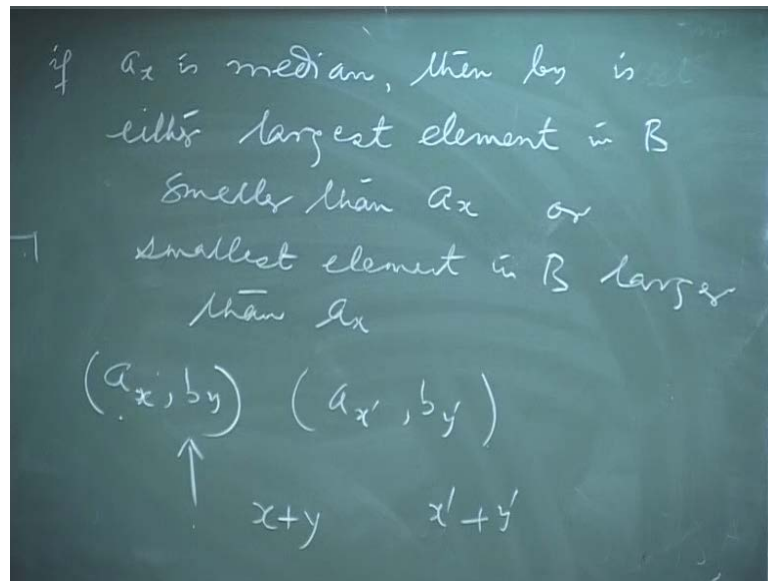 if a_x is median, then by is
either largest element in B
smaller than a_x or
smallest element in B larger
than a_x
(a_x, b_y) (a_x', b_y')
x+y x'+y'